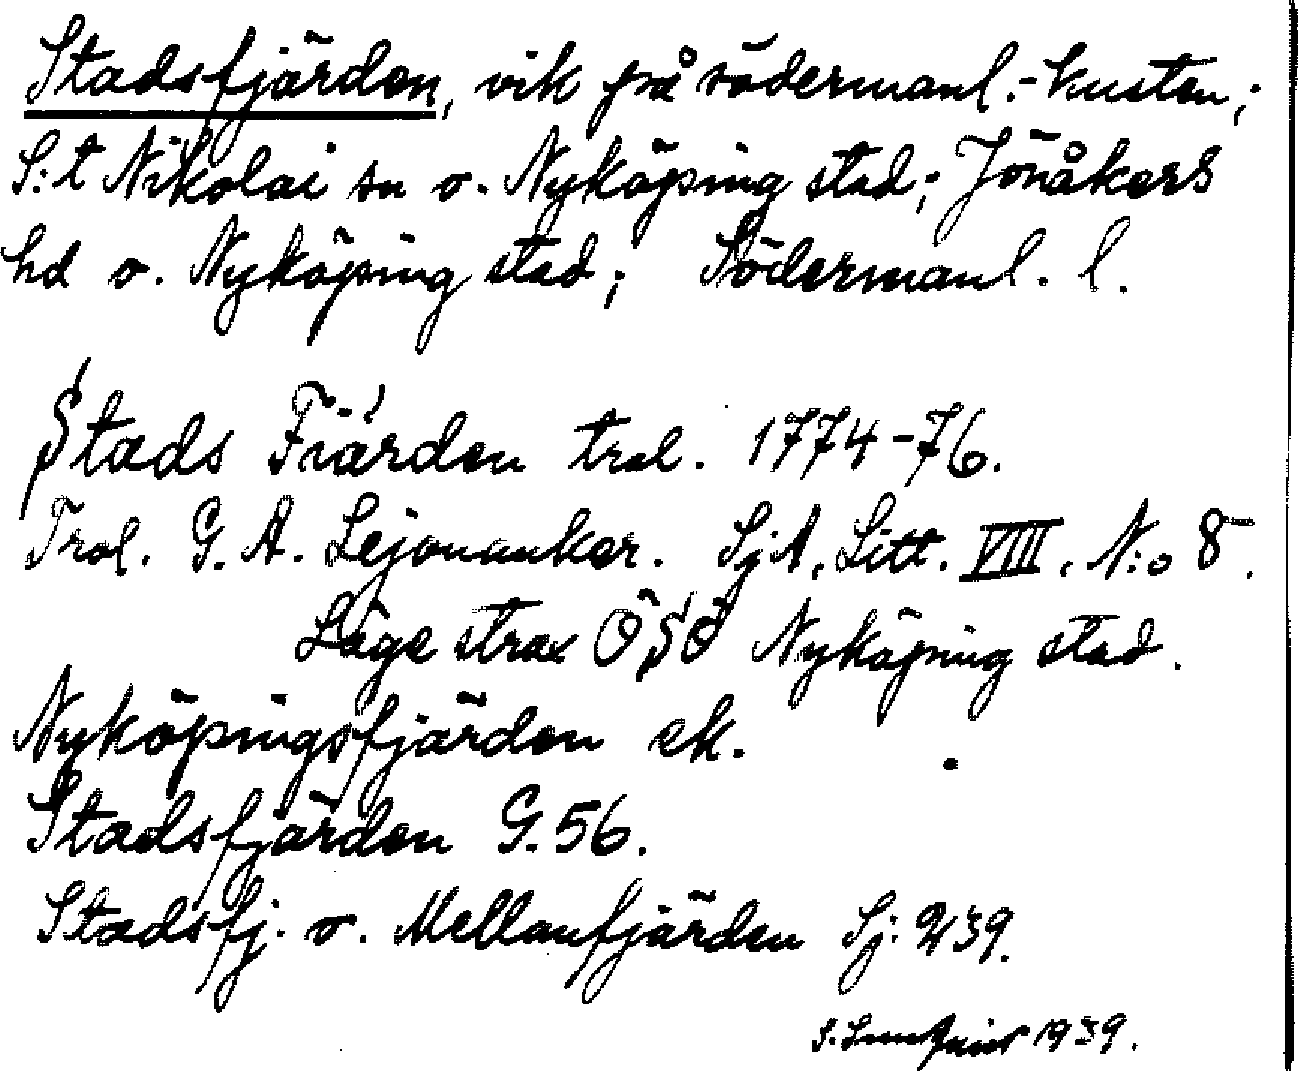 Stadsfjärden, vik på södermanl.-kusten;
S:t Nikolai sn o. Nyköping stad; Jönåkers
hd o. Nyköping stad; Södermanl. l.
Stads Fiärden trol. 1774-76.
Trol. G. A. Lejonanker. SjA, Litt. VIII, N:o 8.
Läge strax ÖSÖ Nyköping stad.
Nyköpingsfjärden ek.
Stadsfjärden G. 56.
Stadsfj. o. Mellanfjärden Sj. 239.
S. 1939.